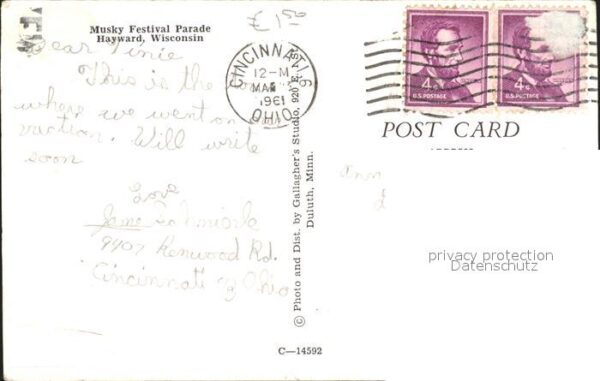 £ 1.50
Musky Festival Parade
Hayward, Wisconsin
Dear
This is the
where we went on
vacation. Will write
soon
Love
Jane
9907 Kenwood Rd.
Cincinnati Ohio
CINCINNATI
12-M
MAR
1961
OHIO
4¢
U.S. POSTAGE
4¢
U.S. POSTAGE
POST CARD
ADDRESS
© Photo and Dist. by Gallagher's Studio, 920 E. 4 St.
Duluth, Minn.
C—14592
privacy protection
Datenschutz